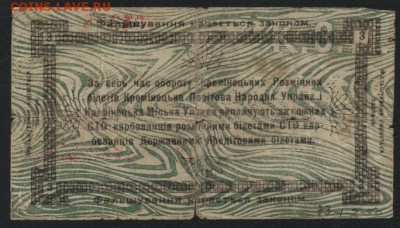 COINS.LAVE.RU
Фальшування карається законом.
3 3
За весь час обороту Кремінецьких Розмінних
білетів Кремінецька Повітова Народна Управа і
Кремінецька Міська Управа виплачують за кожних
СТО карбованців розмінними білетами СТО кар-
бованців Державними Кредитовими білетами.
3 3
Фальшування карається законом.